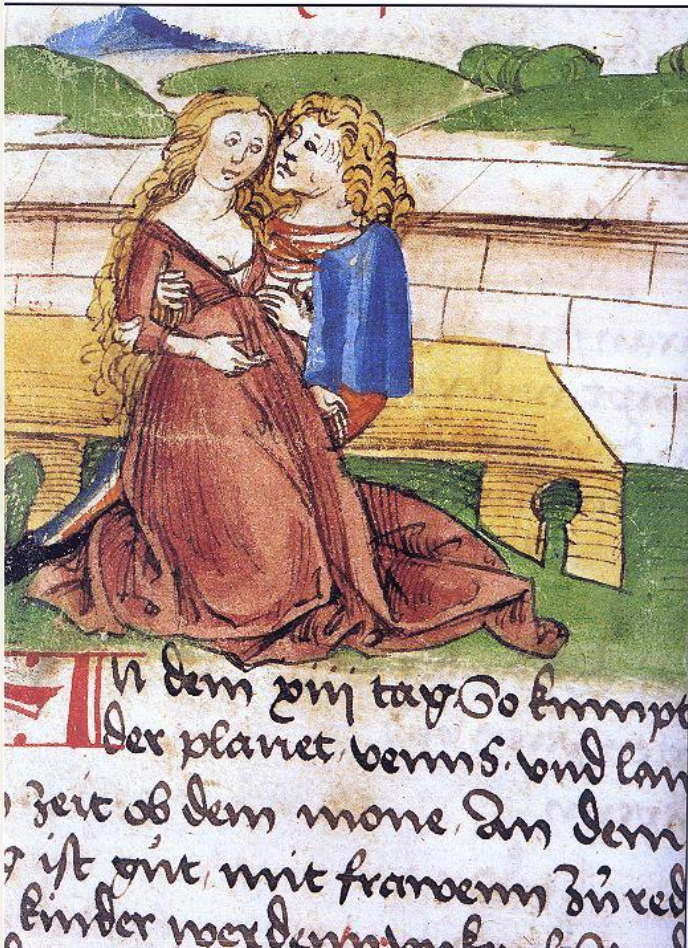 An dem xiii tag So kumpt
der planet venus vnd lan
zeit ob dem mone An dem
ist gůt mit frawenn zů red
kinder werdenn